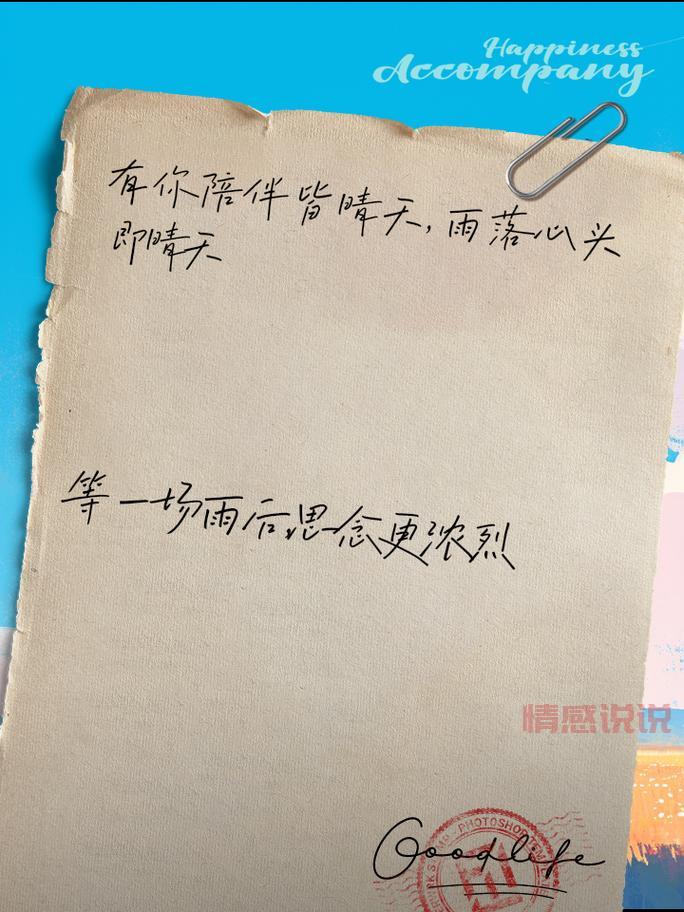 Happiness
Accompany
有你陪伴皆晴天，雨落心头
即晴天
等一场雨后，思念更浓烈
情感说说
PHOTOSHOP
Goodlife